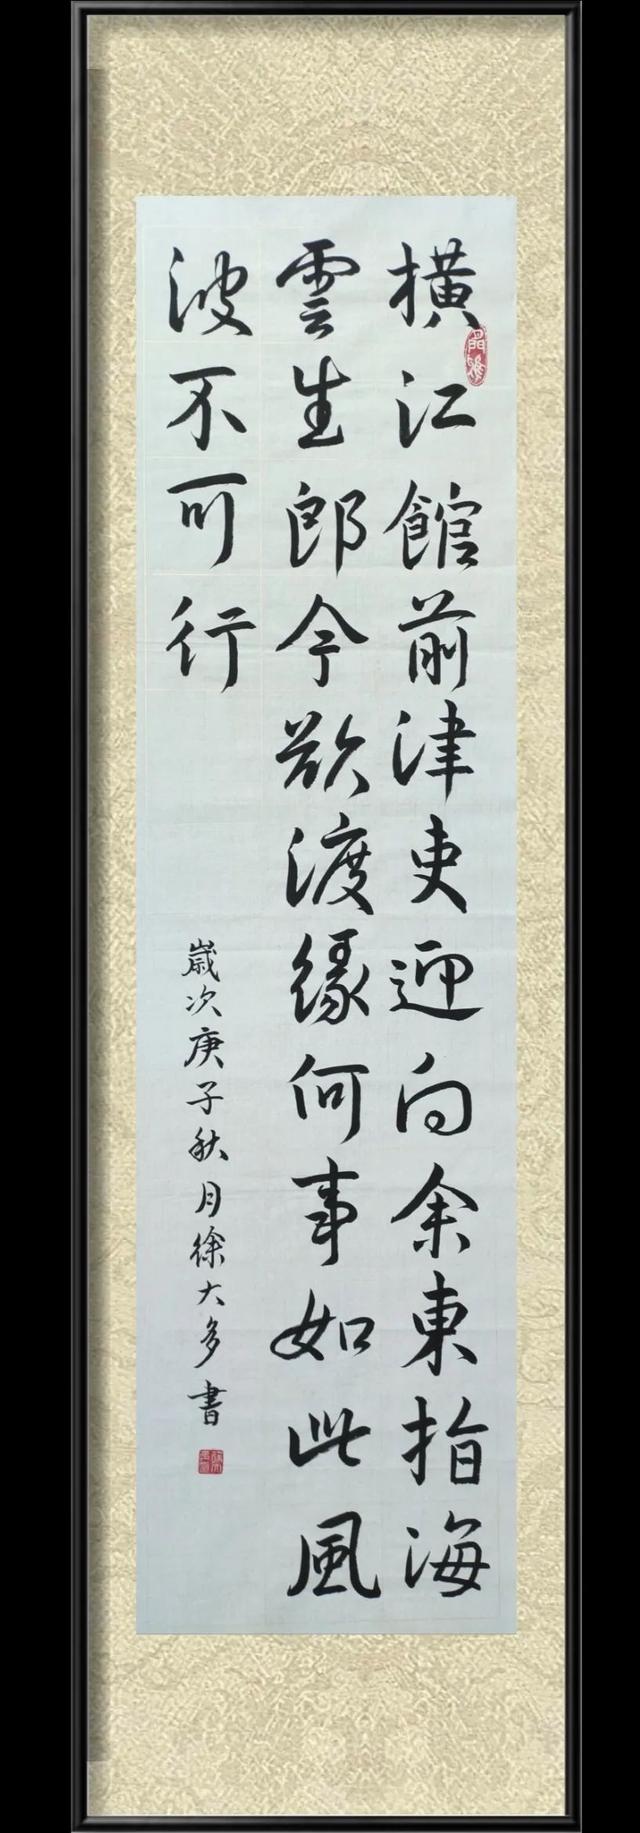 橫江館前津吏迎向余東指海
雲生郎今欲渡緣何事如此風
波不可行
歲次庚子秋月徐大多書